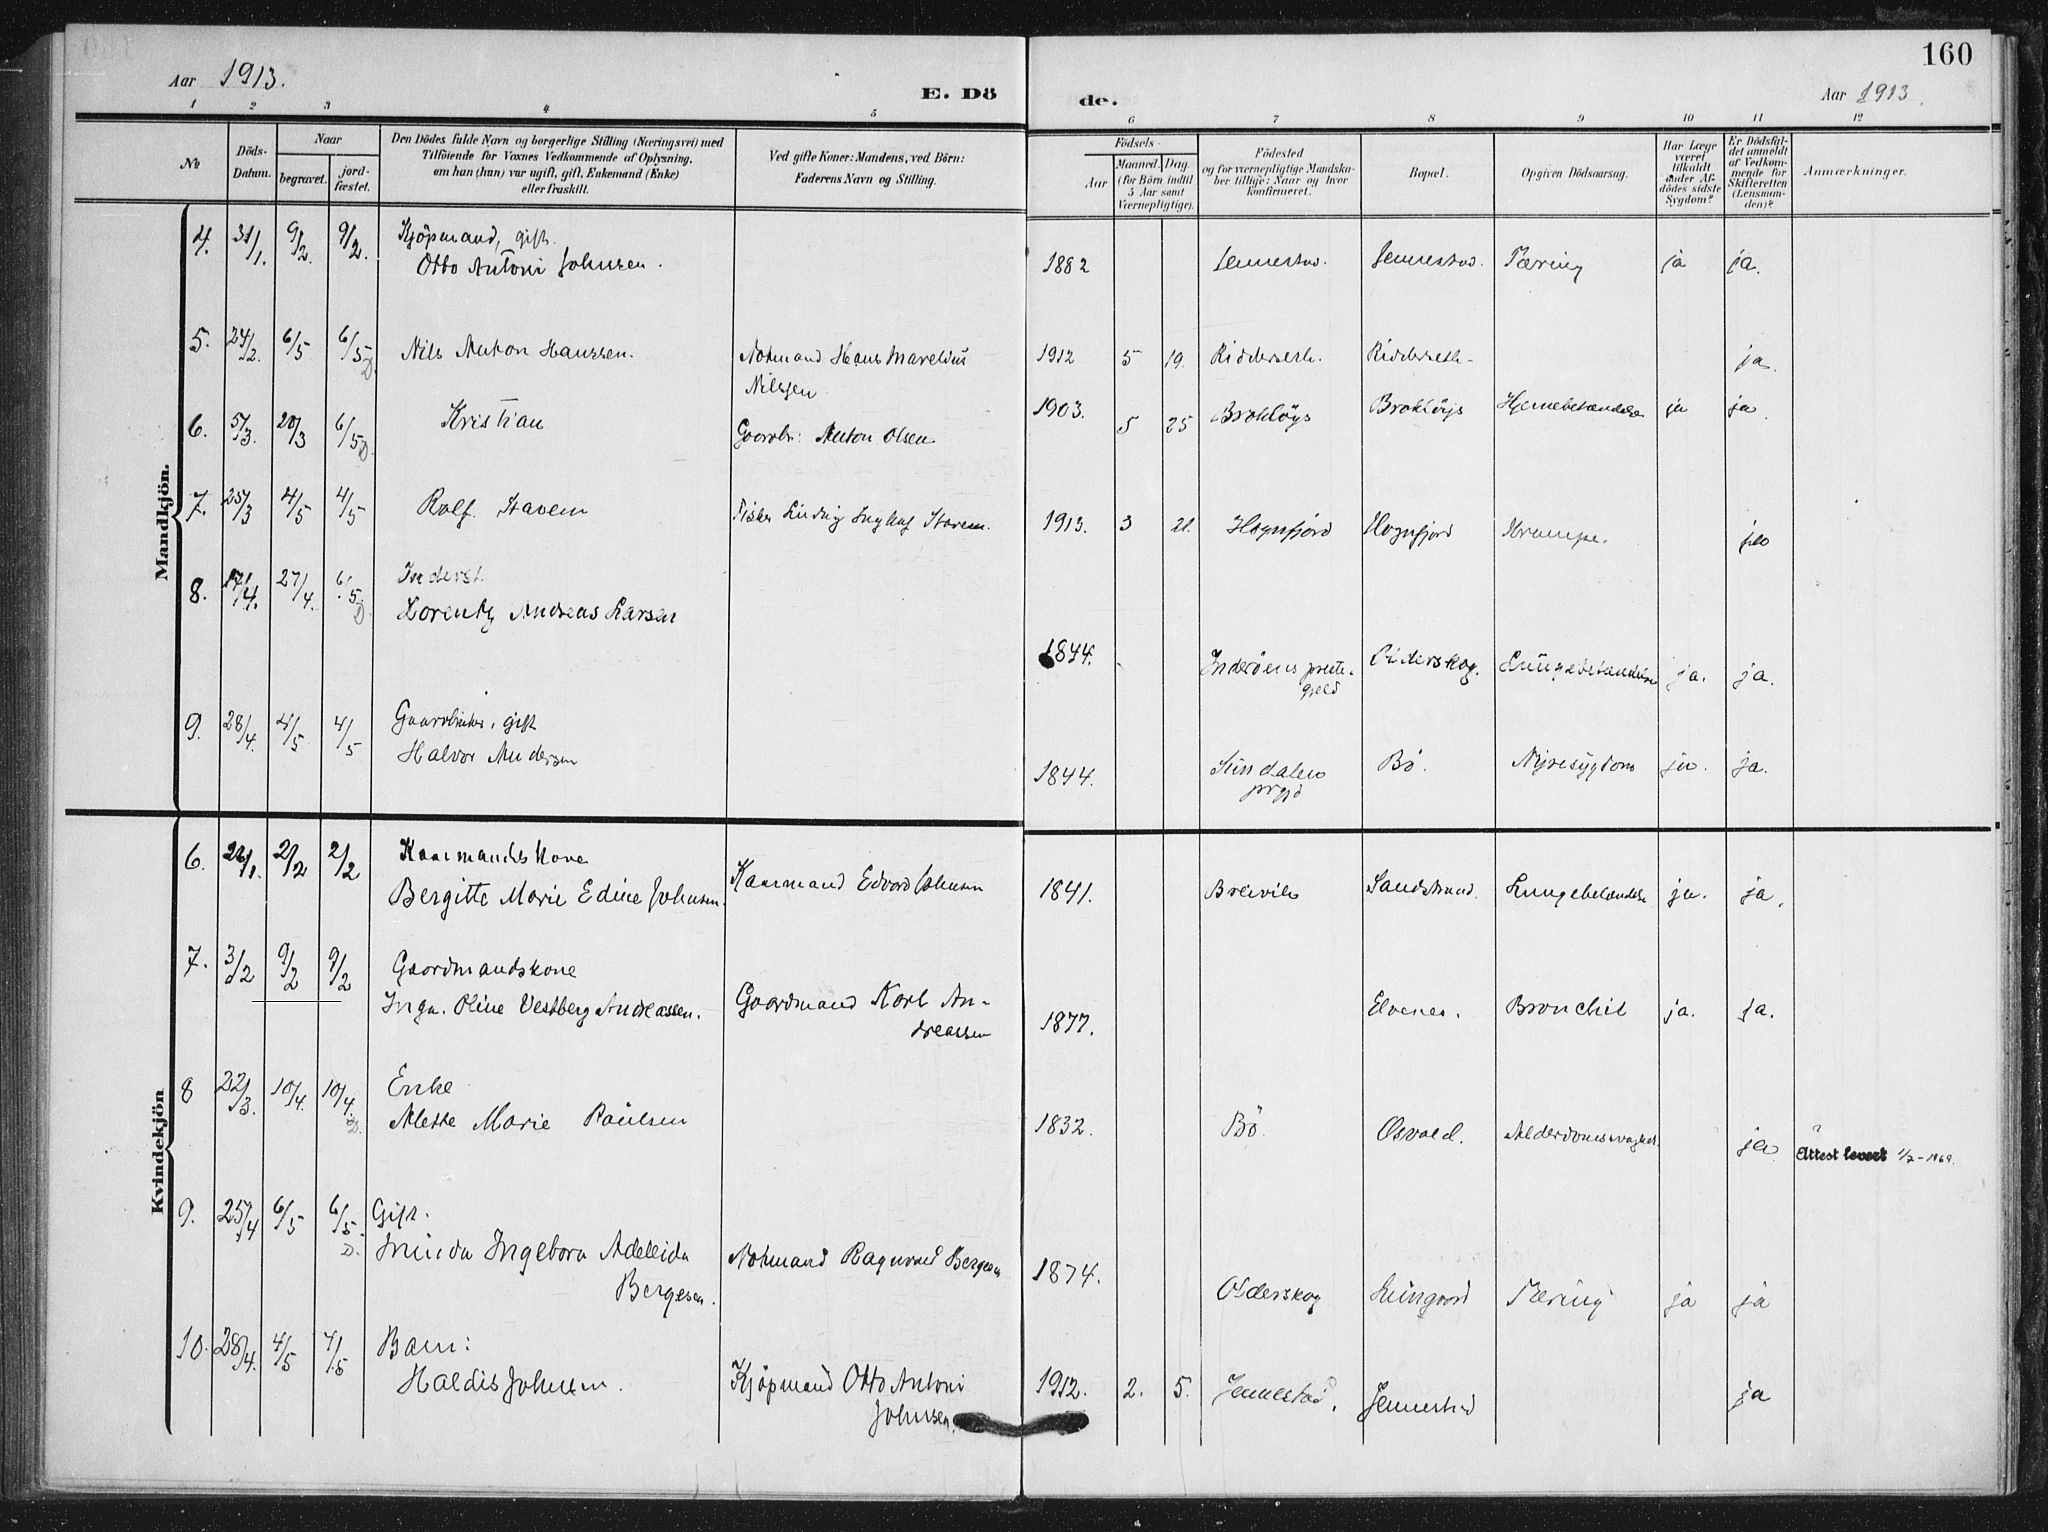 160
Aar 1913.
E. Dö
de.
Aar 1913.
1 2 3 4 5 6 7 8 9 10 11 12
No
Döds-
Datum.
Naar
begravet.
jord-
fæstet.
Den Dödes fulde Navn og borgerlige Stilling (Næringsvei) med
Tilföiende for Voxnes Vedkommende af Oplysning,
om han (hun) var ugift, gift, Enkemand (Enke)
eller fraskilt.
Ved gifte Koner: Mandens, ved Börn:
Faderens Navn og Stilling.
Födsels-
Aar
Maaned. Dag.
(for Börn indtil
5 Aar samt
Værnepligtige).
Födested
og for værnepligtige Mandska-
ber tillige: Naar og hvor
konfirmeret.
Bopæl.
Opgiven Dödsaarsag.
Har Læge
været
tilkaldt
under Af-
dödes sidste
Sygdom?
Er Dödsfal-
det anmeldt
af Vedkom-
mende for
Skifteretten
(Lensman-
den)?
Anmærkninger.
Mandkjön.
4. 31/1. 9/2. 9/2. Kjöpmand, gift.
Otto Antoni Johnsen. 1882 Jennestad. Jennestad. Tæring ja ja.
5. 24/2. 6/5 6/5 D. Nils Anton Hanssen. Notmand Hans Marelius
Nilssen 1912 5 19. Ridderseth. Ridderseth. ja.
6. 5/3. 20/3 6/5 D. Kristian Gaardbr: Anton Olsen 1903. 5 25 Brokløys Brokløys Hjernebetændelse ja ja.
7. 25/3 4/5 4/5 Rolf Stavem Fisker Ludvig Stavem. 1913. 3 21. Hognfjord Hognfjord Krampe. ja
8. 17/4. 27/4. 6/5. D Inderst.
Lorentz Andreas Larsen 1844. Inderöens preste-
gjeld Olderskog. Lungebetændelse ja. ja.
9. 28/4. 4/5 4/5 Gaardbruker, gift
Halvor Andersen 1844. Sundalen
prgjd Bö. Nyresygdom ja. ja.
Kvindekjön
6. 2/2 2/2 Kaarmandskone
Bergitte Marie Edine Johnsen. Kaarmand Edvard Johnsen 1841. Breivik Sandstrand. Lungebetændelse ja. ja.
7. 3/2 9/2 9/2 Gaardmandskone
Inga. Oline Vestberg Andreassen. Gaardmand Karl An-
dreassen 1877. Elvenes. Bronchit ja. ja.
8 22/3. 10/4. 10/4. D. Enke
Alette Marie Paulsen 1832. Bö. Osvold. Alderdomssvaghet ja Attest levert 1/7-1969.
9. 25/4 6/5 6/5. D. Gift.
Ingeborg Adeleida
Bergesen. Notmand Ragnvald Bergesen 1874. Olderskog Tæring ja ja
10. 28/4. 4/5 4/5 Barn:
Haldis Johnsen. Kjöpmand Otto Antoni
Johnsen. 1912. 2. 5. Jennestad. Jennestad ja